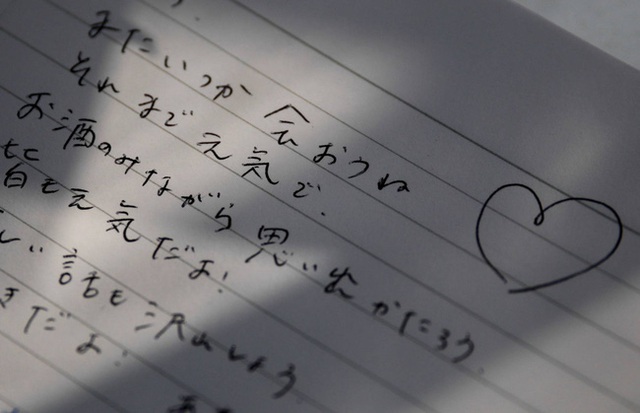 またいつか会おうね
それまで元気で.
お酒のみながら思い出かたろう.
皆も元気だよ!
しい話も沢山しよう
きだよ!